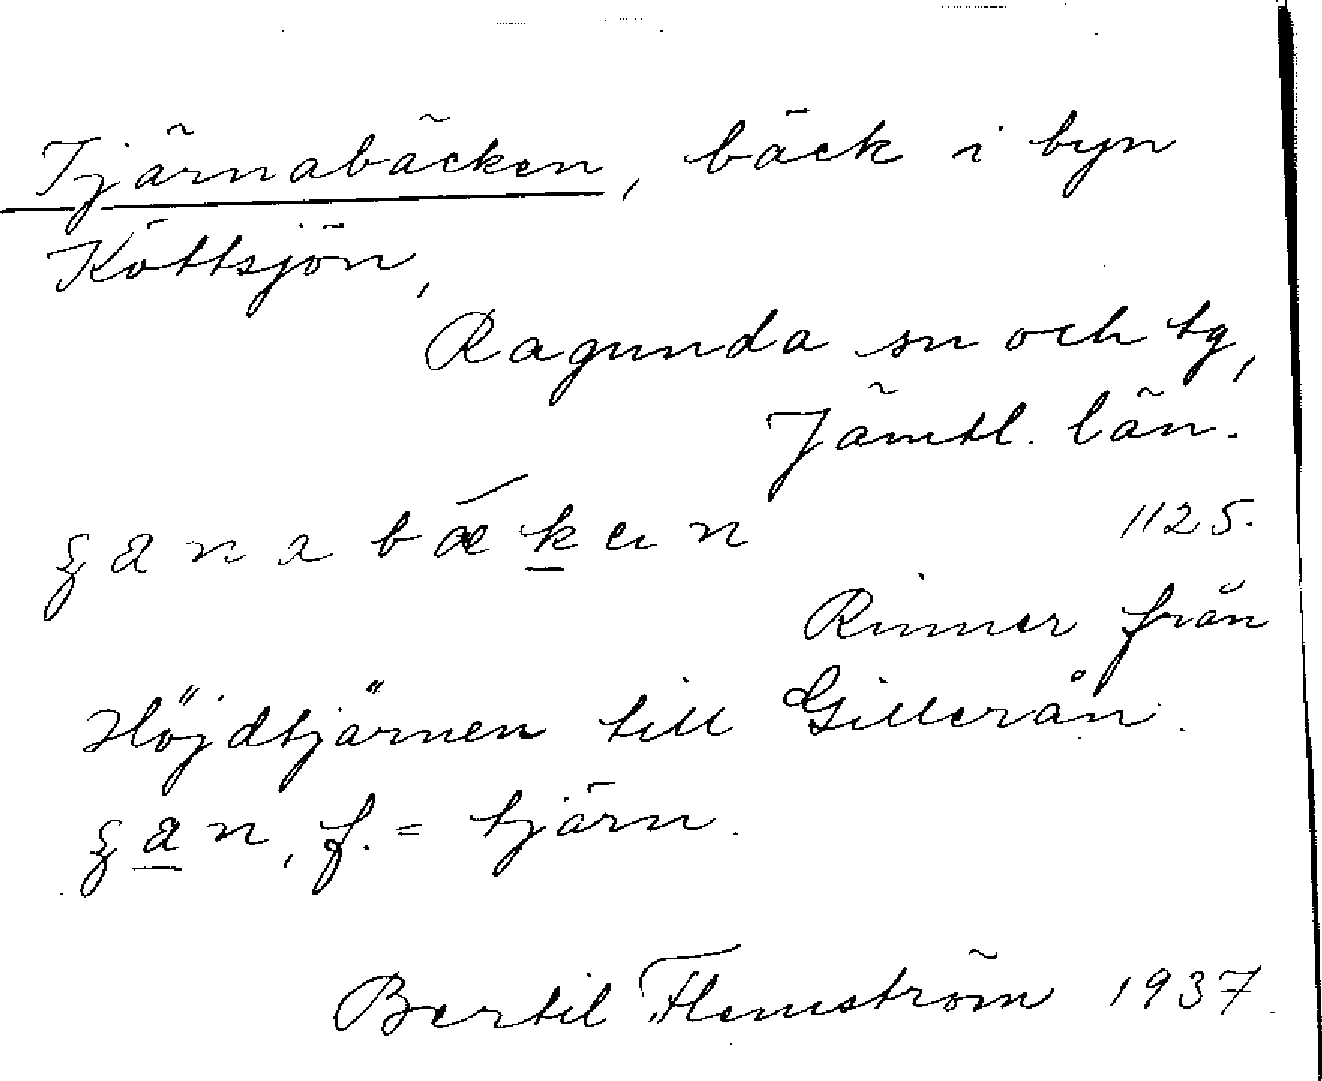 Tjärnabäcken, bäck i byn
Köttsjön,
Ragunda sn och tg,
Jämtl. län.
1125.
Rinner från
Höjdtjärnen till Gillerån.
f. = tjärn.
Bertil Flemström 1937.